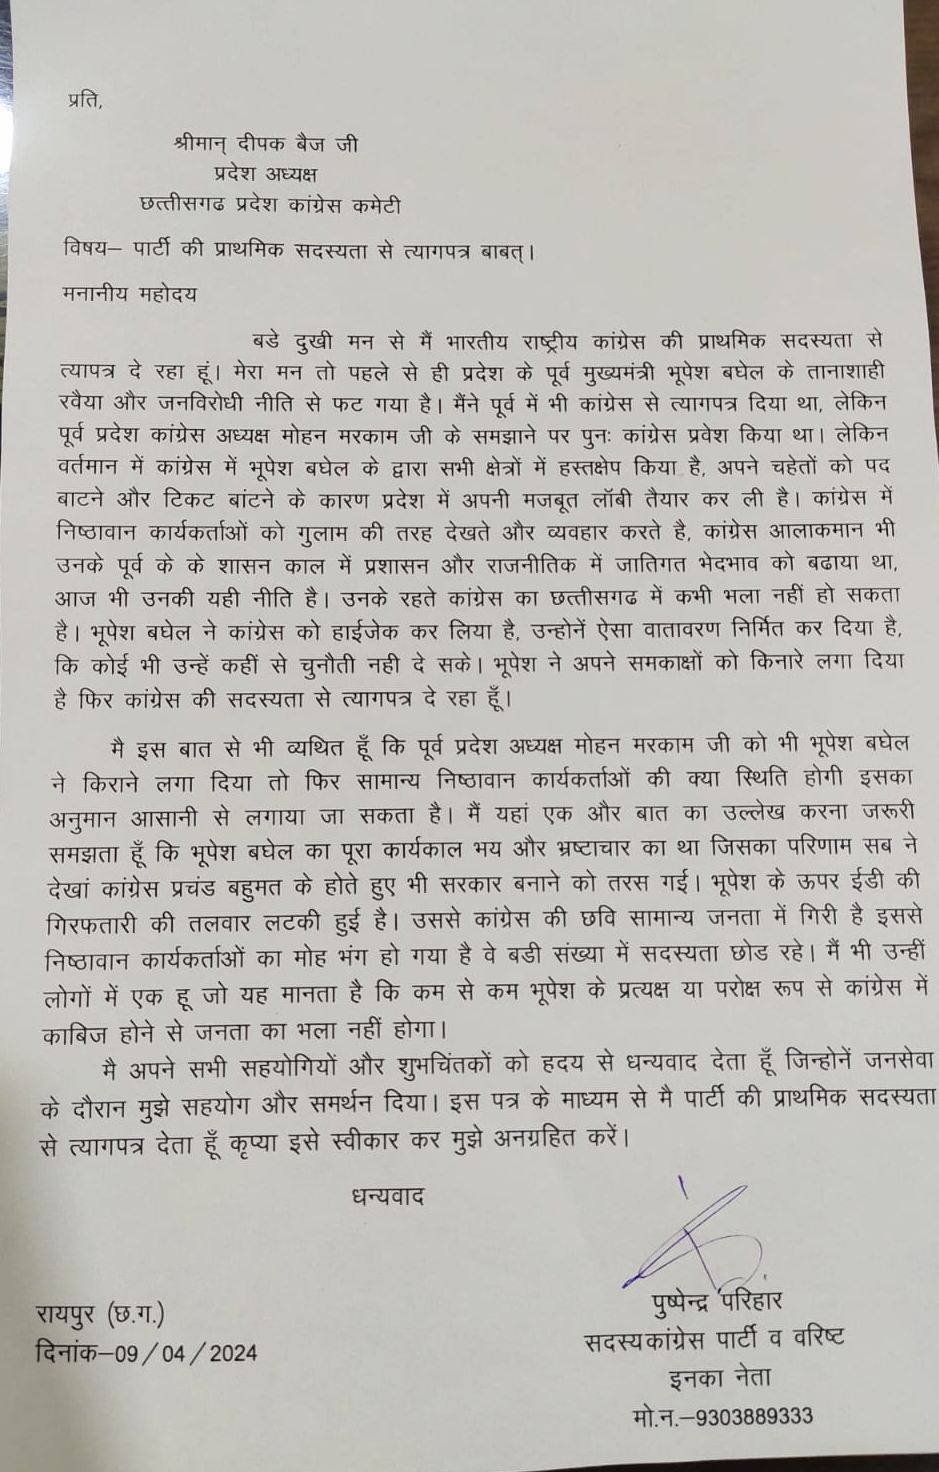 प्रति,
श्रीमान् दीपक बैज जी
प्रदेश अध्यक्ष
छत्तीसगढ प्रदेश कांग्रेस कमेटी
विषय– पार्टी की प्राथमिक सदस्यता से त्यागपत्र बाबत्।
मनानीय महोदय
बडे दुखी मन से मैं भारतीय राष्ट्रीय कांग्रेस की प्राथमिक सदस्यता से
त्यापत्र दे रहा हूं। मेरा मन तो पहले से ही प्रदेश के पूर्व मुख्यमंत्री भूपेश बघेल के तानाशाही
रवैया और जनविरोधी नीति से फट गया है। मैंने पूर्व में भी कांग्रेस से त्यागपत्र दिया था, लेकिन
पूर्व प्रदेश कांग्रेस अध्यक्ष मोहन मरकाम जी के समझाने पर पुनः कांग्रेस प्रवेश किया था। लेकिन
वर्तमान में कांग्रेस में भूपेश बघेल के द्वारा सभी क्षेत्रों में हस्तक्षेप किया है, अपने चहेतों को पद
बाटने और टिकट बांटने के कारण प्रदेश में अपनी मजबूत लॉबी तैयार कर ली है। कांग्रेस में
निष्ठावान कार्यकर्ताओं को गुलाम की तरह देखते और व्यवहार करते है, कांग्रेस आलाकमान भी
उनके पूर्व के के शासन काल में प्रशासन और राजनीतिक में जातिगत भेदभाव को बढाया था,
आज भी उनकी यही नीति है। उनके रहते कांग्रेस का छत्तीसगढ में कभी भला नहीं हो सकता
है। भूपेश बघेल ने कांग्रेस को हाईजेक कर लिया है, उन्होनें ऐसा वातावरण निर्मित कर दिया है,
कि कोई भी उन्हें कहीं से चुनौती नही दे सके। भूपेश ने अपने समकाक्षों को किनारे लगा दिया
है फिर कांग्रेस की सदस्यता से त्यागपत्र दे रहा हूँ।
मै इस बात से भी व्यथित हूँ कि पूर्व प्रदेश अध्यक्ष मोहन मरकाम जी को भी भूपेश बघेल
ने किराने लगा दिया तो फिर सामान्य निष्ठावान कार्यकर्ताओं की क्या स्थिति होगी इसका
अनुमान आसानी से लगाया जा सकता है। मैं यहां एक और बात का उल्लेख करना जरूरी
समझता हूँ कि भूपेश बघेल का पूरा कार्यकाल भय और भ्रष्टाचार का था जिसका परिणाम सब ने
देखां कांग्रेस प्रचंड बहुमत के होते हुए भी सरकार बनाने को तरस गई। भूपेश के ऊपर ईडी की
गिरफतारी की तलवार लटकी हुई है। उससे कांग्रेस की छवि सामान्य जनता में गिरी है इससे
निष्ठावान कार्यकर्ताओं का मोह भंग हो गया है वे बडी संख्या में सदस्यता छोड रहे। मैं भी उन्हीं
लोगों में एक हू जो यह मानता है कि कम से कम भूपेश के प्रत्यक्ष या परोक्ष रूप से कांग्रेस में
काबिज होने से जनता का भला नहीं होगा।
मै अपने सभी सहयोगियों और शुभचिंतकों को हदय से धन्यवाद देता हूँ जिन्होनें जनसेवा
के दौरान मुझे सहयोग और समर्थन दिया। इस पत्र के माध्यम से मै पार्टी की प्राथमिक सदस्यता
से त्यागपत्र देता हूँ कृप्या इसे स्वीकार कर मुझे अनग्रहित करें।
धन्यवाद
पुष्पेन्द्र परिहार
रायपुर (छ.ग.)
सदस्यकांग्रेस पार्टी व वरिष्ट
दिनांक–09/04/2024
इनका नेता
मो.न.–9303889333